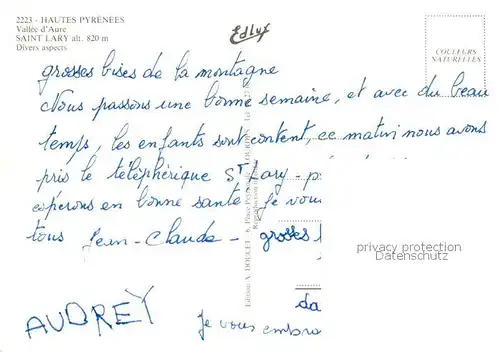 2223 - HAUTES PYRÉNÉES
Vallée d'Aure
SAINT LARY alt. 820 m
Divers aspects
Edlux
COULEURS
NATURELLES
grosses bises de la montagne
Nous passons une bonne semaine, et avec du beau
temps, les enfants sont content, ce matin nous avons
pris le téléphérique St Lary - p
espérons en bonne santé Je vou
tous Jean-Claude - grosses
da
AUDREY
Je vous embra
Edition A. DOUCET - 6, Place Pey LOURDES
Reproduction
privacy protection
Datenschutz